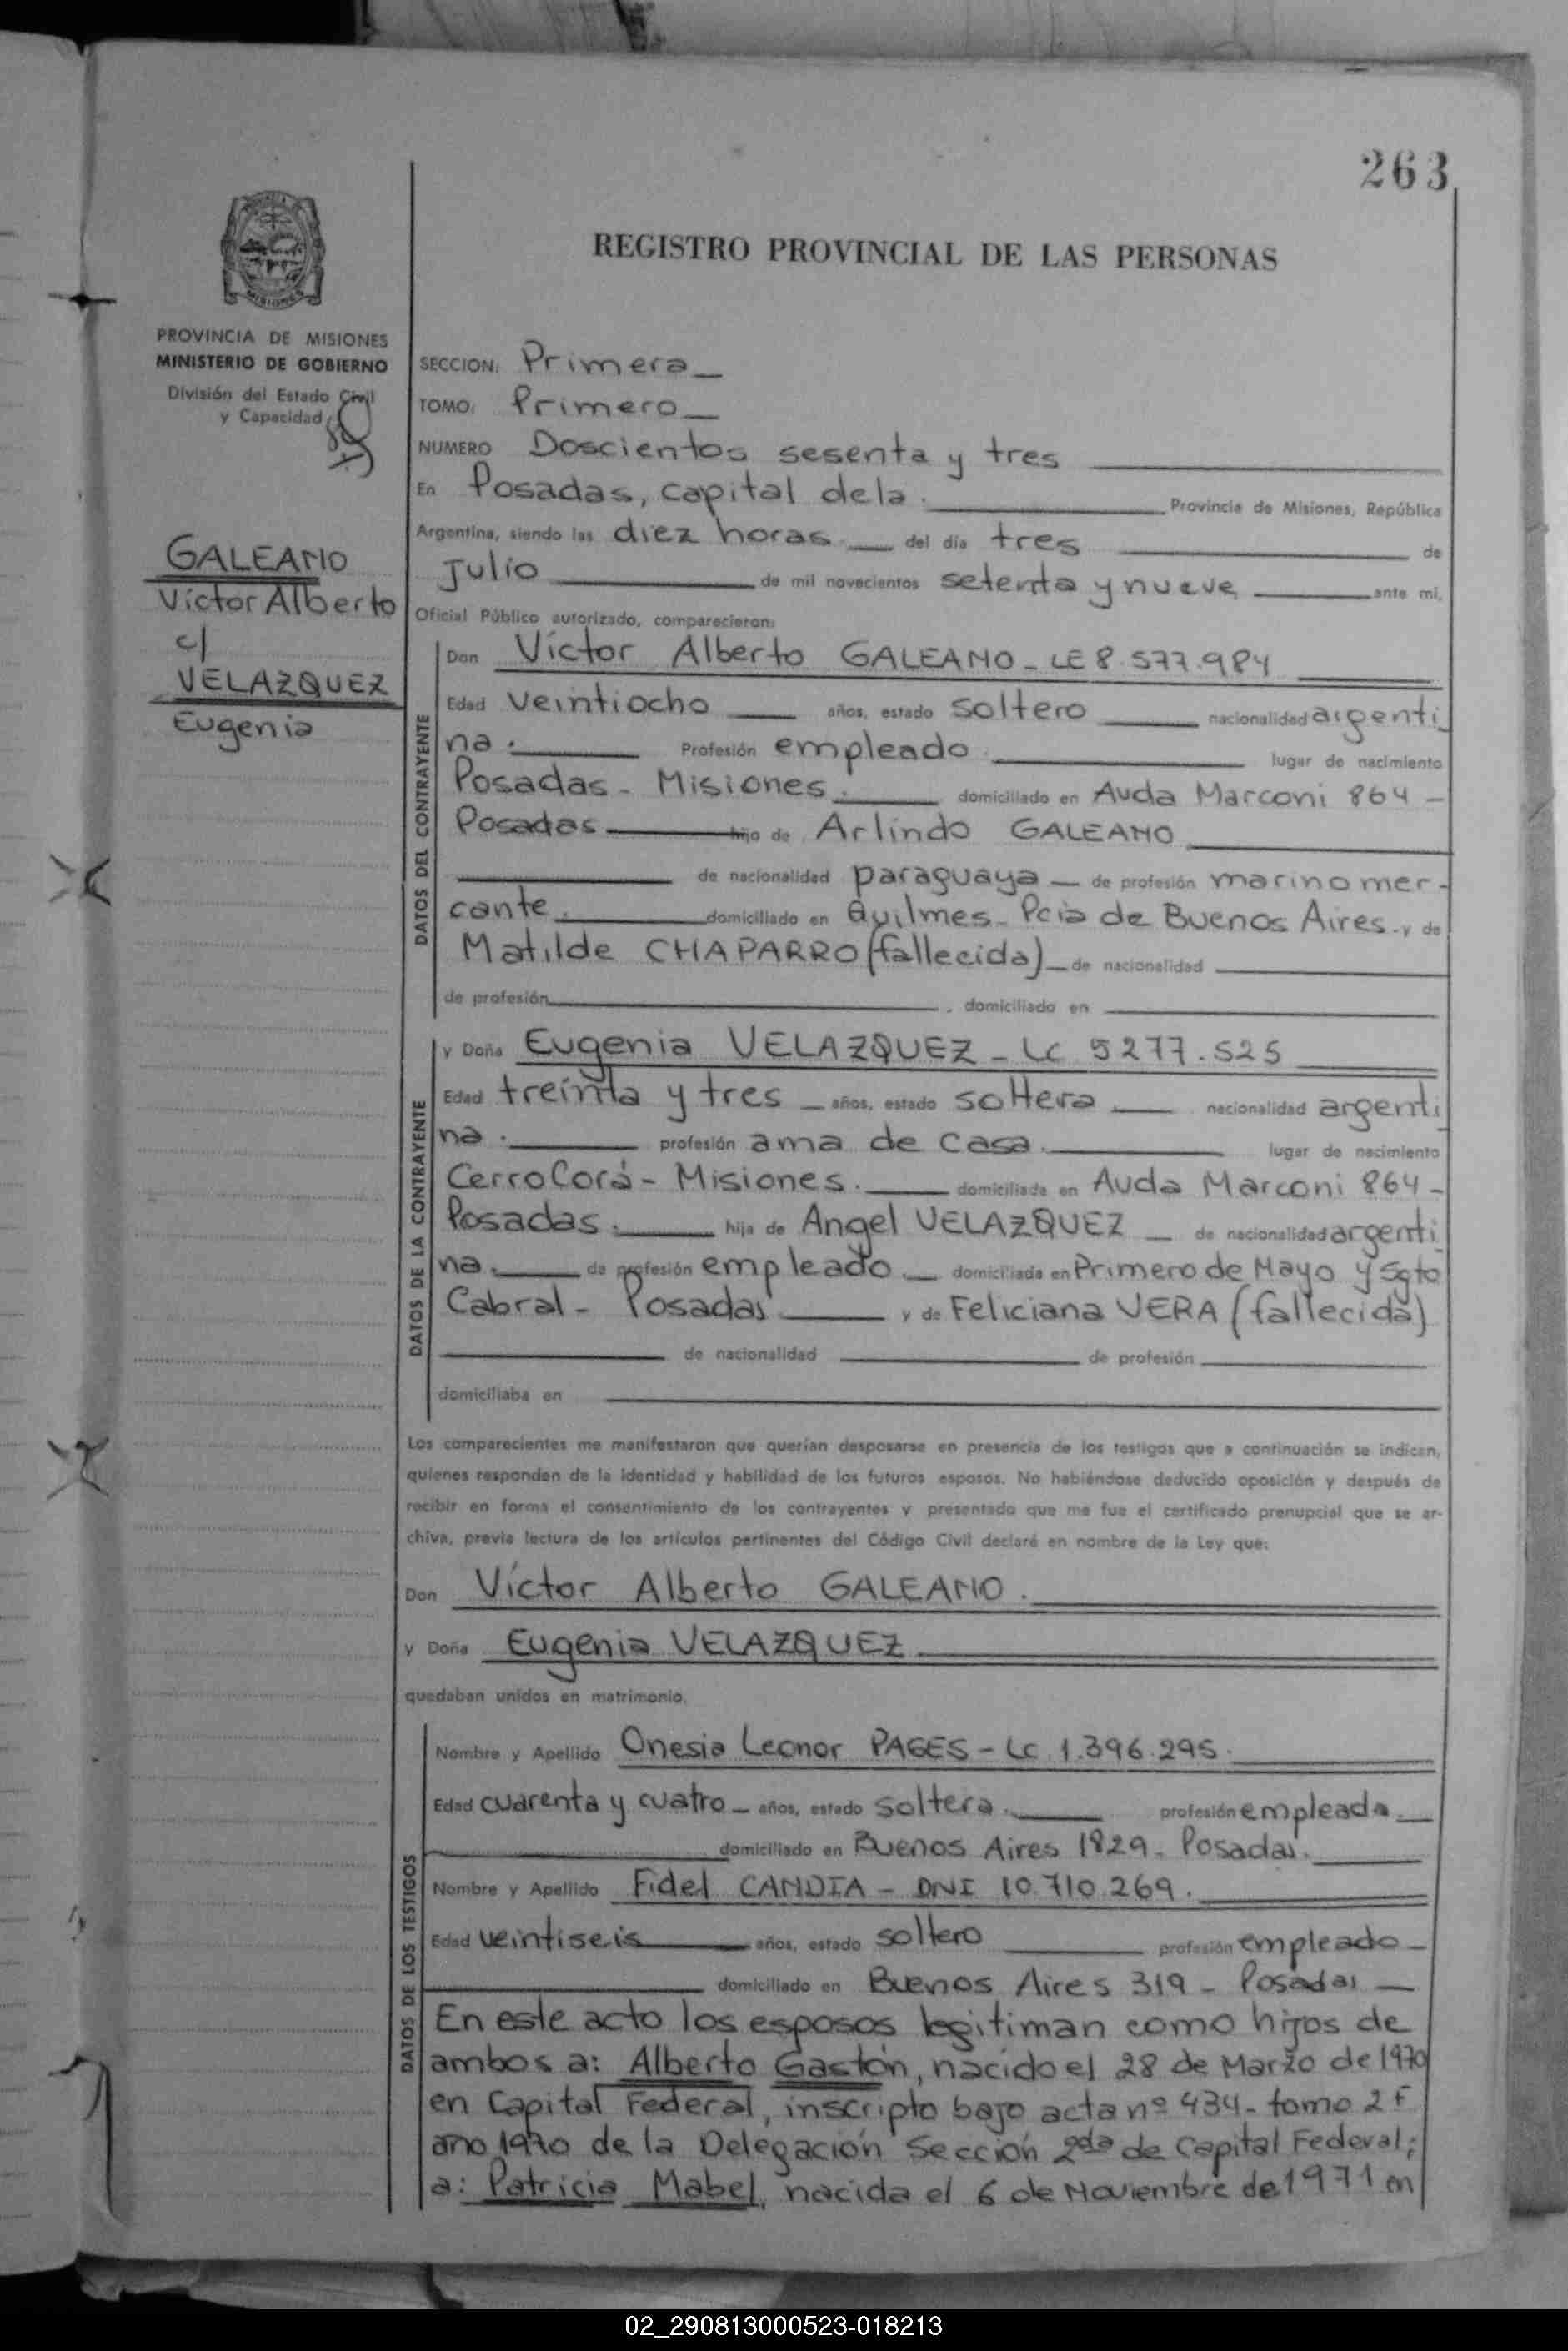 263
REGISTRO PROVINCIAL DE LAS PERSONAS
MISIONES
PROVINCIA DE MISIONES
MINISTERIO DE GOBIERNO
División del Estado Civil
y Capacidad
GALEANO
Víctor Alberto
c/
VELAZQUEZ
Eugenia
SECCION: Primera
TOMO: Primero
NUMERO Doscientos sesenta y tres
En Posadas, capital de la. Provincia de Misiones, República
Argentina, siendo las diez horas del día tres de
Julio de mil novecientos setenta y nueve ante mi,
Oficial Público autorizado, comparecieron:
DATOS DEL CONTRAYENTE
Don Víctor Alberto GALEANO - LE 8.577.984
Edad veintiocho años, estado soltero nacionalidad argenti
na. Profesión empleado. lugar de nacimiento
Posadas - Misiones. domiciliado en Avda Marconi 864 -
Posadas hijo de Arlindo GALEANO
de nacionalidad paraguaya de profesión marino mer-
cante. domiciliado en Quilmes - Pcia de Buenos Aires. y de
Matilde CHAPARRO (fallecida) de nacionalidad
de profesión , domiciliado en
DATOS DE LA CONTRAYENTE
y Doña Eugenia VELAZQUEZ - LC 5277.525
Edad treinta y tres años, estado soltera nacionalidad argenti
na. profesión ama de casa. lugar de nacimiento
Cerro Corá - Misiones. domiciliada en Avda Marconi 864 -
Posadas. hija de Angel VELAZQUEZ de nacionalidad argenti
na. de profesión empleado. domiciliada en Primero de Mayo y Sgto
Cabral - Posadas y de Feliciana VERA (fallecida)
de nacionalidad de profesión
domiciliaba en
Los comparecientes me manifestaron que querían desposarse en presencia de los testigos que a continuación se indican,
quienes responden de la identidad y habilidad de los futuros esposos. No habiéndose deducido oposición y después de
recibir en forma el consentimiento de los contrayentes y presentado que me fue el certificado prenupcial que se ar-
chiva, previa lectura de los artículos pertinentes del Código Civil declaré en nombre de la Ley que:
Don Víctor Alberto GALEANO.
y Doña Eugenia VELAZQUEZ
quedaban unidos en matrimonio.
DATOS DE LOS TESTIGOS
Nombre y Apellido Onesia Leonor PAGES - LC 1.396.295.
Edad cuarenta y cuatro años, estado soltera. profesión empleada.
domiciliado en Buenos Aires 1829 - Posadas.
Nombre y Apellido Fidel CANDIA - DNI 10.710.269.
Edad veintiseis años, estado soltero profesión empleado
domiciliado en Buenos Aires 319 - Posadas
En este acto los esposos legitiman como hijos de
ambos a: Alberto Gastón, nacido el 28 de Marzo de 1970
en Capital Federal, inscripto bajo acta nº 434 - tomo 2 F
año 1970 de la Delegación Sección 2da de Capital Federal;
a: Patricia Mabel, nacida el 6 de Noviembre de 1971 en
02_290813000523-018213